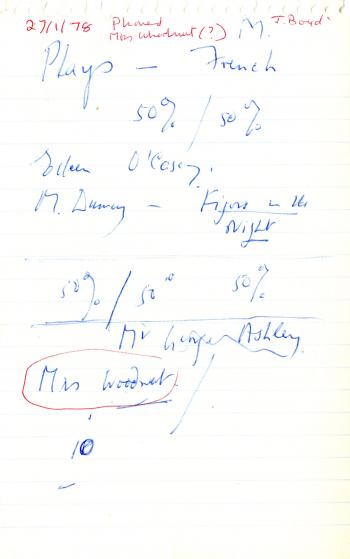 27/1/78 Phoned M. J. Boyd
Mrs Woodnut (?)
Plays – French
50% / 50%
Eileen O'Casey.
M. Durney – Figure in the
Night
50% / 50% 50%
Mr Ashley
Mrs Woodnut.
10